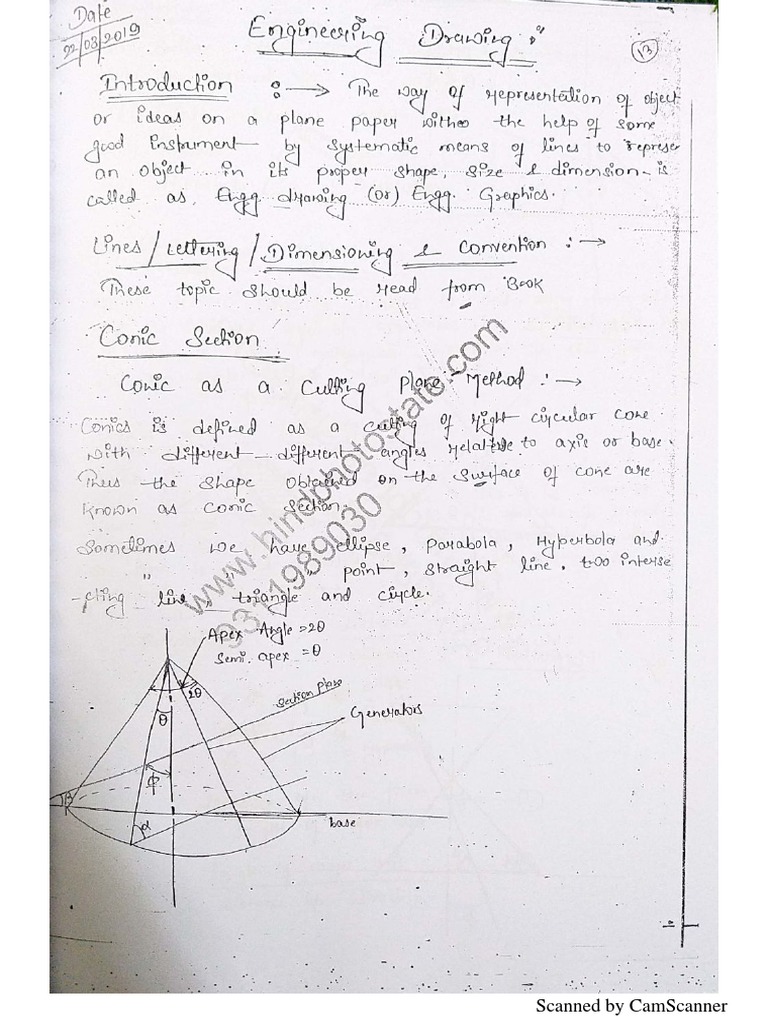 Date
22/03/2019
Engineering Drawing :-
13
Introduction :→ The way of representation of object
or ideas on a plane paper with the help of some
good instrument by systematic means of lines to represe
an object in its proper shape, size & dimension is
called as, Engg drawing (or) Engg. Graphics.
Lines / Lettering / Dimensioning & Convention :→
These topic should be read from Book
Conic Section
Conic as a Cutting Plane Method :→
Conics is defined as a cutting of right circular cone
with different-different angles relative to axis or base.
Thus the shape obtained on the surface of cone are
known as conic section.
Sometimes we have ellipse, Parabola, Hyperbola and
" " " point, straight line, too interse
-cting line, triangle and circle.
www.hindphotostate.com
9311989030
Apex Angle = 2θ
Semi. apex = θ
2θ
Section Plane
θ
Generators
φ
β
α
base
Scanned by CamScanner